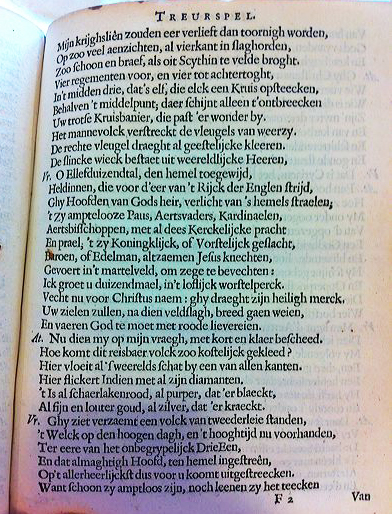 TREURSPEL.
Mijn krijghsliên zouden eer verlieft dan toornigh worden,
Op zoo veel aenzichten, al vierkant in slaghorden,
Zoo schoon en braef, als oit Scythin te velde broght.
Vier regementen voor, en vier tot achtertoght,
In't midden drie, dat's elf, die elck een Kruis opsteecken,
Behalven 't middelpunt; daer schijnt alleen t'ontbreecken
Uw trotse Kruisbanier, die past 'er wonder by.
Het mannevolck verstreckt de vleugels van weerzy.
De rechte vleugel draeght al geestelijcke kleeren.
De slincke wieck bestaet uit weereldlijcke Heeren,
Vr. O Ellefduizendtal, den hemel toegewijd,
Heldinnen, die voor d'eer van 't Rijck der Englen strijd,
Ghy Hoofden van Gods heir, verlicht van 's hemels straelen;
't zy amptelooze Paus, Aertsvaders, Kardinaelen,
Aertsbisschoppen, met al dees Kerckelijcke pracht
En prael, 't zy Koningklijck, of Vorstelijck geslacht,
Baroen, of Edelman, altzaemen Jesus knechten,
Gevoert in't martelveld, om zege te bevechten:
Ick groet u duizendmael, in't loflijck worstelperck.
Vecht nu voor Christus naem: ghy draeght zijn heiligh merck.
Uw zielen zullen, na dien veldslagh, breed gaen weien,
En vaeren God te moet met roode lievereien.
At. Nu dien my op mijn vraegh, met kort en klaer bescheed.
Hoe komt dit reisbaer volck zoo kostelijck gekleed?
Hier vloeit al 's weerelds schat by een van allen kanten.
Hier flickert Indien met al zijn diamanten.
't Is al schaerlakenrood, al purper, dat 'er blaeckt,
Al fijn en louter goud, al zilver, dat 'er kraeckt.
Vr. Ghy ziet verzaemt een volck van tweederleie standen,
't Welck op den hoogen dagh, en 't hooghtijd nu voorhanden,
Ter eere van het onbegrypelijck DrieEen,
En dat almaghtigh Hoofd, ten hemel ingestreên,
Op't allerheerlijckst dus voor u koomt uitgestreecken.
Want schoon zy amptloos zijn, noch leenen zy het teecken
F 2 Van